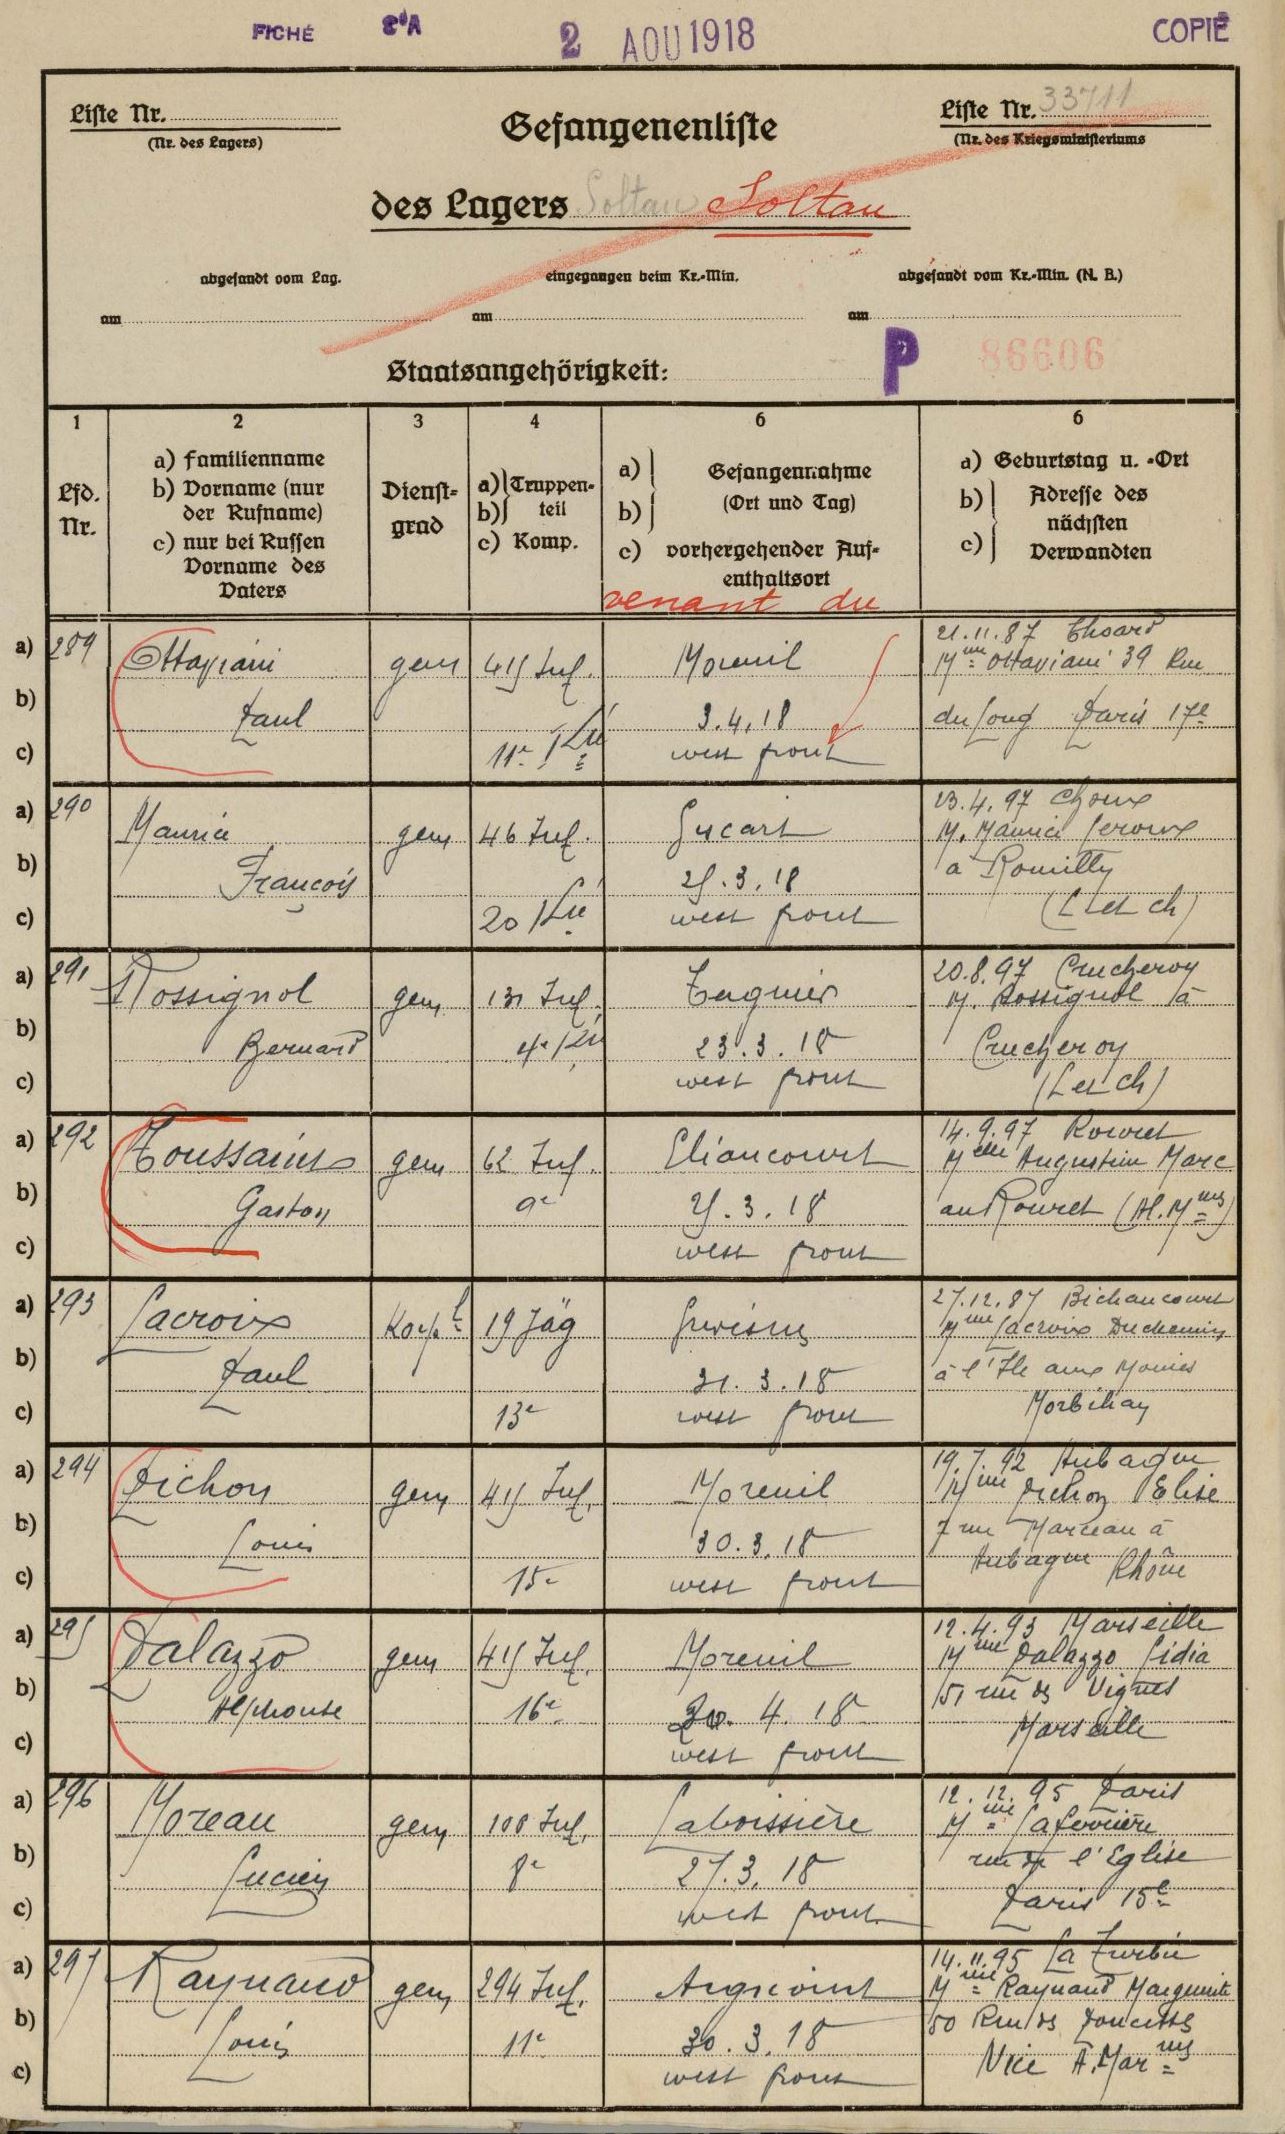 FICHÉ
2 AOU 1918
COPIÉ
Liste Nr.
(Nr. des Lagers)
Gefangenenliste
Liste Nr. 33711
(Nr. des Kriegsministeriums
des Lagers Soltau Soltau
abgesandt vom Lag.
eingegangen beim Kr.-Min.
abgesandt vom Kr.-Min. (N. B.)
am
am
am
Staatsangehörigkeit:
P 86606
1
Lfd.
Nr.
2
a) Familienname
b) Vorname (nur
der Rufname)
c) nur bei Russen
Vorname des
Vaters
3
Dienst-
grad
4
a) Truppen-
b) teil
c) Komp.
6
a) Gefangennahme
b) (Ort und Tag)
c) vorhergehender Auf-
enthaltsort
venant du
6
a) Geburtstag u. -Ort
b) Adresse des
nächsten
c) Verwandten
a) 289 Ottaviani gem 415 Inf. Moreuil
21.11.87 Thoard
Mme Ottaviani 39 Rue
b) Paul 3.4.18
Paris 17e
c) 11e Kie west front
a) 290 Maurice gem 46 Inf.
23.4.97
M. Maurice Leroux
b) François 25.3.18
à Romilly
c) 20 Kie west front
(L et ch)
a) 291 Rossignol gem 131 Inf. Tergnier
20.8.97 Crucheroy
M. Rossignol à
b) Bernard 4e Kie 23.3.18
Crucheroy
c) west front
(L et ch)
a) 292 Toussaint gem 62 Inf. Eliancourt
14.9.97 Rouret
Augustin Marc
b) Gaston 9e 25.3.18
au Rouret (Al. Mmes)
c) west front
a) 293 Lacroix Korpl 19 Jäg
27.12.87 Bichancourt
Mme Lacroix Duchemin
b) Paul 21.3.18
à l'Ile aux Moines
c) 13e west front
Morbihan
a) 294 Pichon gem 415 Inf. Moreuil
19.7.92 Aubagne
Mme Pichon Elise
b) Louis 30.3.18
7 rue Marceau à
c) 15e west front
Aubagne Rhône
a) 295 Palazzo gem 415 Inf. Moreuil
12.4.93 Marseille
Mme Palazzo Lidia
b) Alphonse 16e 4.18
51 rue des Vignes
c) west front
Marseille
a) 296 Moreau gem 108 Inf. Laboissière
12.12.95 Paris
Mme Laferrière
b) Lucien 8e 27.3.18
rue de l'Eglise
c) west front
Paris 15e
a) 297 Raynaud gem 294 Inf.
14.11.95 La Turbie
Mme Raynaud Marguerite
b) Louis 11e 30.3.18
50 Rue des
c) west front
Nice A. Mar mes